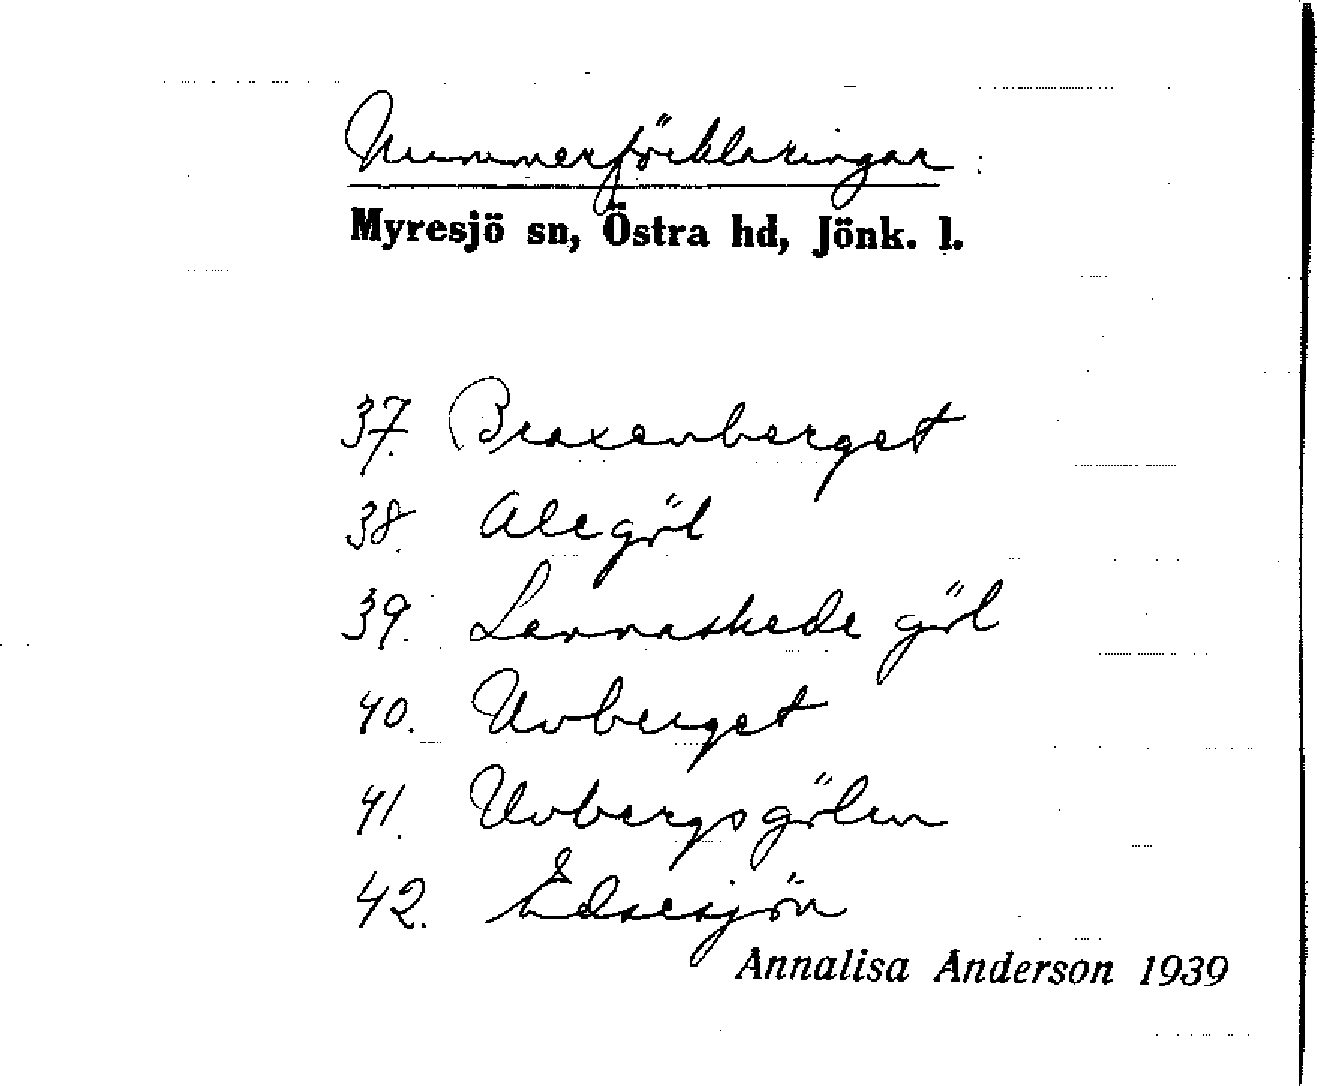 Nummerförklaringar
Myresjö sn, Östra hd, Jönk. l.
37. Braxenberget
38. Alegöl
39. Lannaskede göl
40. Uvberget
41. Uvbergsgölen
42.
Annalisa Anderson 1939